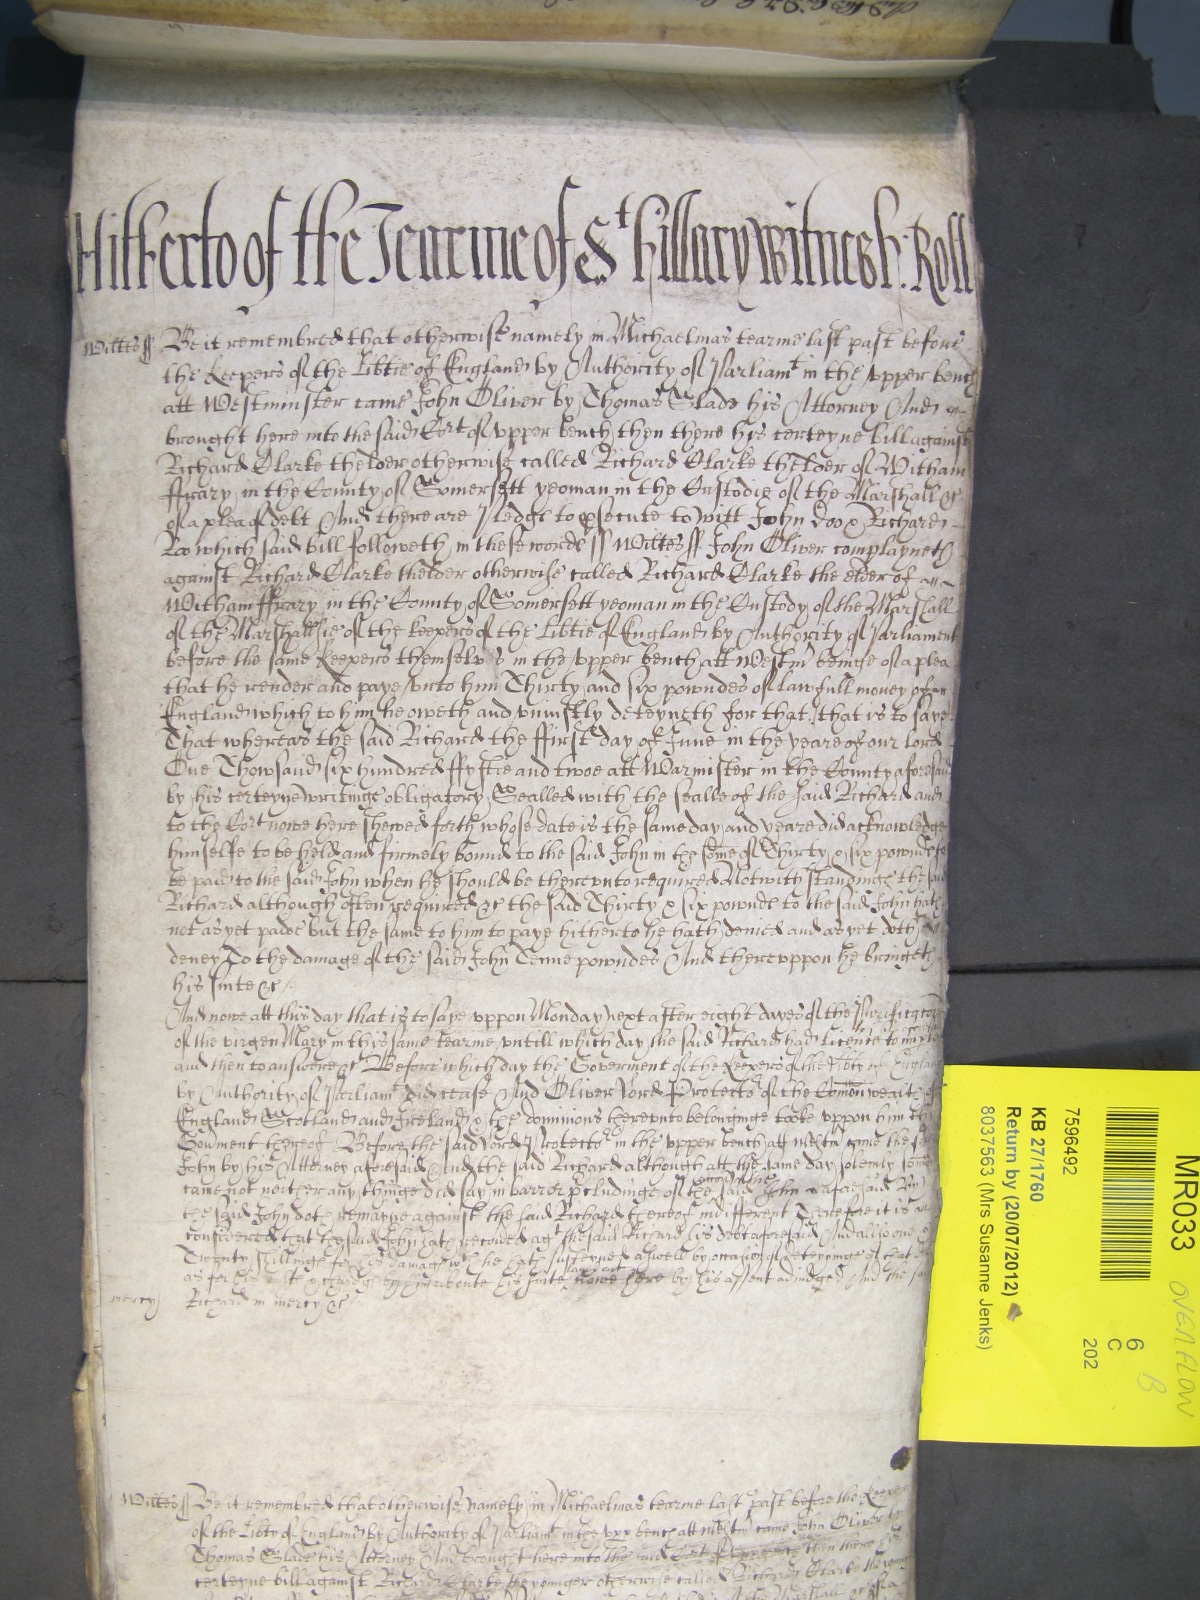 Hitherto of the Tearme of St hillary witnesh: Roll
Wiltes ss Be it remembred that otherwise namely in Michaelmas tearme last past before
the keepers of the Libtie of England by Authority of Parliamt in the upper bench
att Westminster came John Oliver by Thomas Slade his Attorney And
brought here into the said Cort of upper bench then there his certeyne bill against
Richard Clarke thelder otherwise called Richard Clarke thelder of Witham
ffrary in the County of Somersett yeoman in the Custodie of the Marshall &c
of a plea of debt And there are Pledge to psecute to witt John Doo & Richard
Roo which said bill followeth in these words ss Wiltes ss John Oliver complayneth
against Richard Clarke thelder otherwise called Richard Clarke the elder of
Witham ffrary in the County of Somersett yeoman in the Custody of the Marshall
of the Marshallsie of the keepers of the Libtie of England by Authority of Parliament
before the same keepers themselvs in the upper bench att Westmr beinge of a plea
that he render and paye unto him Thirty and six powndes of lawfull money of
England which to him he oweth and uniustly deteyneth for that, that is to saye
That whereas the said Richard the ffirst day of June in the yeare of our Lord
One Thowsand six hundred ffyftie and twoe att Warmister in the County aforesaid
by his certeyne writinge obligatory Sealled with the sealle of the said Richard and
to the Cort nowe here shewed forth whose date is the same day and yeare did acknowledge
himselfe to be held and firmely bound to the said John in the some of Thirty & six pownde to
be paid to the said John when he should be thereunto required Notwithstandinge the said
Richard although often required &c the said Thirty & six pownde to the said John hath
not as yet paide but the same to him to paye hitherto he hath denied and as yet doth
deney To the damage of the said John Tenne powndes And thereuppon he bringeth
his suite &c
And nowe att this day that is to saye uppon Monday next after eight dayes of the Purificacon
of the virgen Mary in this same tearme untill which day the said Richard had licence to imple
and then to answere &c Before which day the Goverment of the keepers of the libty of England
by Authority of Parliamt did cease And Oliver Lord Protector of the Comonwealth of
England Scotland and Ireland & the dominions thereunto belonginge tooke uppon him the
Govment thereof Before the said Lord Protector in the upper bench att Westm came the said
John by his Attorney aforesaid And the said Richard although att the same day solemly
came not neither any thinge did say in barr or pcludinge of the said John
the said John doth remayne against the said Richard thereof indifferent Therefore it is
considered that the said John hath recoved agt the said Richard his debt aforesaid And also
Twenty shillinge for his damage wch he hath susteyned aswell by occasion of deteyninge of that
as for his nowe here by his assent adiudged And the
mercy Richard in mercy &c
Wiltes ss Be it remembred that otherwise namely in Michaelmas tearme last past before the keepers
of the Libty of England by Authority of Parliamt in the upp bench att Westmr came John Oliver by
Thomas Slade his Attorney And brought here into the said Cort of then there
certeyne bill against Richard Clarke the younger otherwise called Richard Clarke the
MR033
OVERFLOW
B
6
C
202
7596492
KB 27/1760
Return by (20/07/2012)
8037563 (Mrs Susanne Jenks)